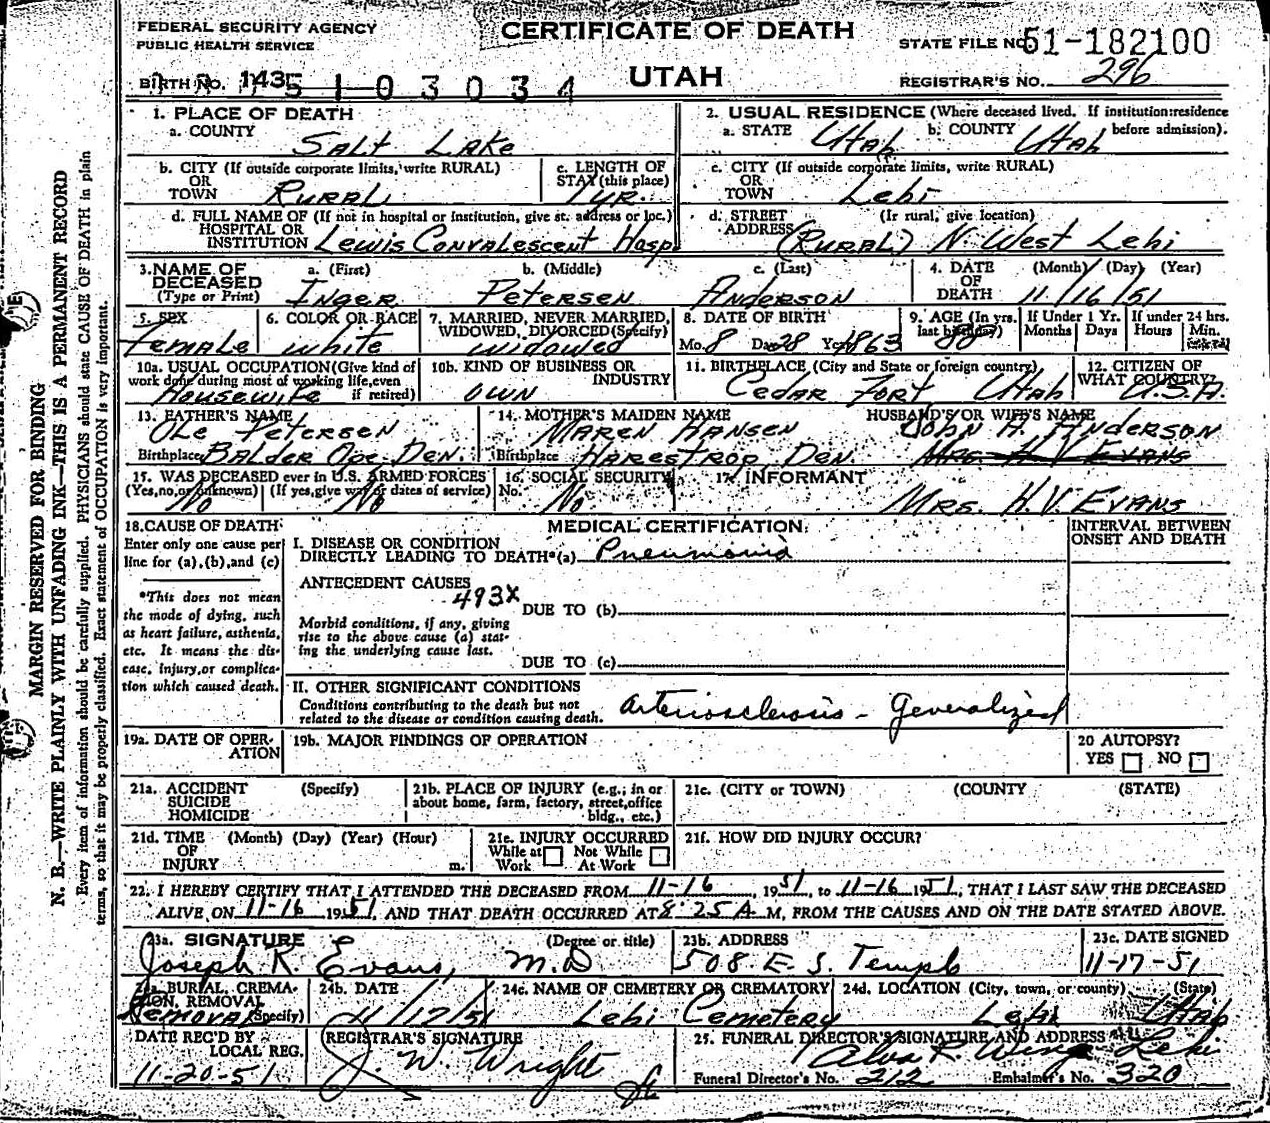 FEDERAL SECURITY AGENCY
PUBLIC HEALTH SERVICE
CERTIFICATE OF DEATH
UTAH
STATE FILE NO. 51-182100
REGISTRAR'S NO. 296
BIRTH NO. 143 51 03034
1. PLACE OF DEATH
a. COUNTY Salt Lake
2. USUAL RESIDENCE (Where deceased lived. If institution:residence before admission).
a. STATE Utah b. COUNTY Utah
b. CITY (If outside corporate limits, write RURAL) OR TOWN Rural
c. LENGTH OF STAY (this place) 1 yr.
c. CITY (If outside corporate limits, write RURAL) OR TOWN Lehi
d. FULL NAME OF (If not in hospital or institution, give st. address or loc.) HOSPITAL OR INSTITUTION Lewis Convalescent Hosp.
d. STREET ADDRESS (If rural, give location) (Rural) N. West Lehi
3. NAME OF DECEASED (Type or Print)
a. (First) Inger
b. (Middle) Petersen
c. (Last) Anderson
4. DATE OF DEATH (Month) (Day) (Year) 11/16/51
5. SEX Female
6. COLOR OR RACE White
7. MARRIED, NEVER MARRIED, WIDOWED, DIVORCED (Specify) Widowed
8. DATE OF BIRTH Mo. 8 Da. 28 Yr. 1863
9. AGE (In yrs. last birthday) 88
If Under 1 Yr. Months Days
If under 24 hrs. Hours Min.
10a. USUAL OCCUPATION (Give kind of work done during most of working life, even if retired) Housewife
10b. KIND OF BUSINESS OR INDUSTRY Own
11. BIRTHPLACE (City and State or foreign country) Cedar Fort Utah
12. CITIZEN OF WHAT COUNTRY? U.S.A.
13. FATHER'S NAME Ole Petersen
Birthplace Balder Den.
14. MOTHER'S MAIDEN NAME Maren Hansen
Birthplace Harestrop, Den.
HUSBAND'S OR WIFE'S NAME John A. Anderson
Mrs. H V Evans
15. WAS DECEASED ever in U.S. ARMED FORCES
(Yes, no, or unknown) No (If yes, give war or dates of service) No
16. SOCIAL SECURITY No. No
17. INFORMANT
Mrs. H.V. Evans
18. CAUSE OF DEATH
Enter only one cause per line for (a), (b), and (c)
*This does not mean the mode of dying, such as heart failure, asthenia, etc. It means the disease, injury, or complication which caused death.
MEDICAL CERTIFICATION
INTERVAL BETWEEN ONSET AND DEATH
I. DISEASE OR CONDITION DIRECTLY LEADING TO DEATH*(a) Pneumonia
ANTECEDENT CAUSES
493X
DUE TO (b)
Morbid conditions, if any, giving rise to the above cause (a) stating the underlying cause last.
DUE TO (c)
II. OTHER SIGNIFICANT CONDITIONS
Conditions contributing to the death but not related to the disease or condition causing death.
Arteriosclerosis - Generalized
19a. DATE OF OPERATION
19b. MAJOR FINDINGS OF OPERATION
20 AUTOPSY?
YES NO
21a. ACCIDENT SUICIDE HOMICIDE (Specify)
21b. PLACE OF INJURY (e.g.; in or about home, farm, factory, street, office bldg., etc.)
21c. (CITY or TOWN) (COUNTY) (STATE)
21d. TIME OF INJURY (Month) (Day) (Year) (Hour) m.
21e. INJURY OCCURRED
While at Work Not While At Work
21f. HOW DID INJURY OCCUR?
22. I HEREBY CERTIFY THAT I ATTENDED THE DECEASED FROM 11-16, 1951, to 11-16 1951, THAT I LAST SAW THE DECEASED
ALIVE ON 11-16 1951, AND THAT DEATH OCCURRED AT 8:25 A. M, FROM THE CAUSES AND ON THE DATE STATED ABOVE.
23a. SIGNATURE (Degree or title)
Joseph R. Evans, M.D
23b. ADDRESS
508 E. S. Temple
23c. DATE SIGNED
11-17-51
24a. BURIAL, CREMATION, REMOVAL (Specify) Removal
24b. DATE
24c. NAME OF CEMETERY OR CREMATORY
Lehi Cemetery
24d. LOCATION (City, town, or county) (State)
Lehi Utah
DATE REC'D BY LOCAL REG.
11-20-51
REGISTRAR'S SIGNATURE
J. W. Wright
25. FUNERAL DIRECTOR'S SIGNATURE AND ADDRESS
Alva R. Wing Lehi
Funeral Director's No. 212 Embalmer's No. 320
MARGIN RESERVED FOR BINDING
N. B.—WRITE PLAINLY WITH UNFADING INK—THIS IS A PERMANENT RECORD
Every item of information should be carefully supplied. PHYSICIANS should state CAUSE OF DEATH in plain
terms, so that it may be properly classified. Exact statement of OCCUPATION is very important.